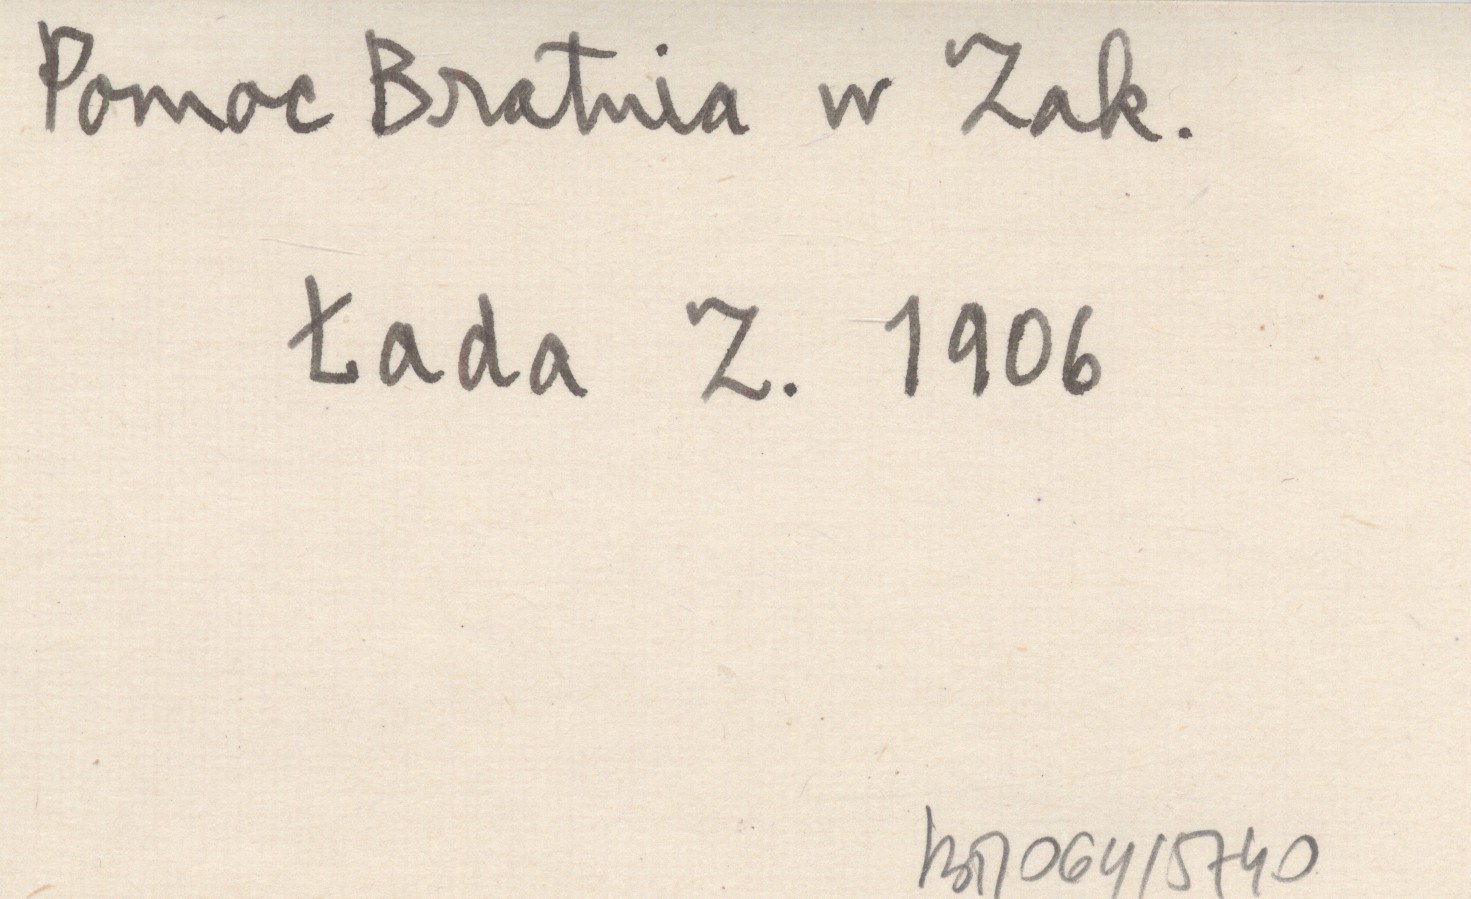 Pomoc Bratnia w Zak.
Łada Z. 1906